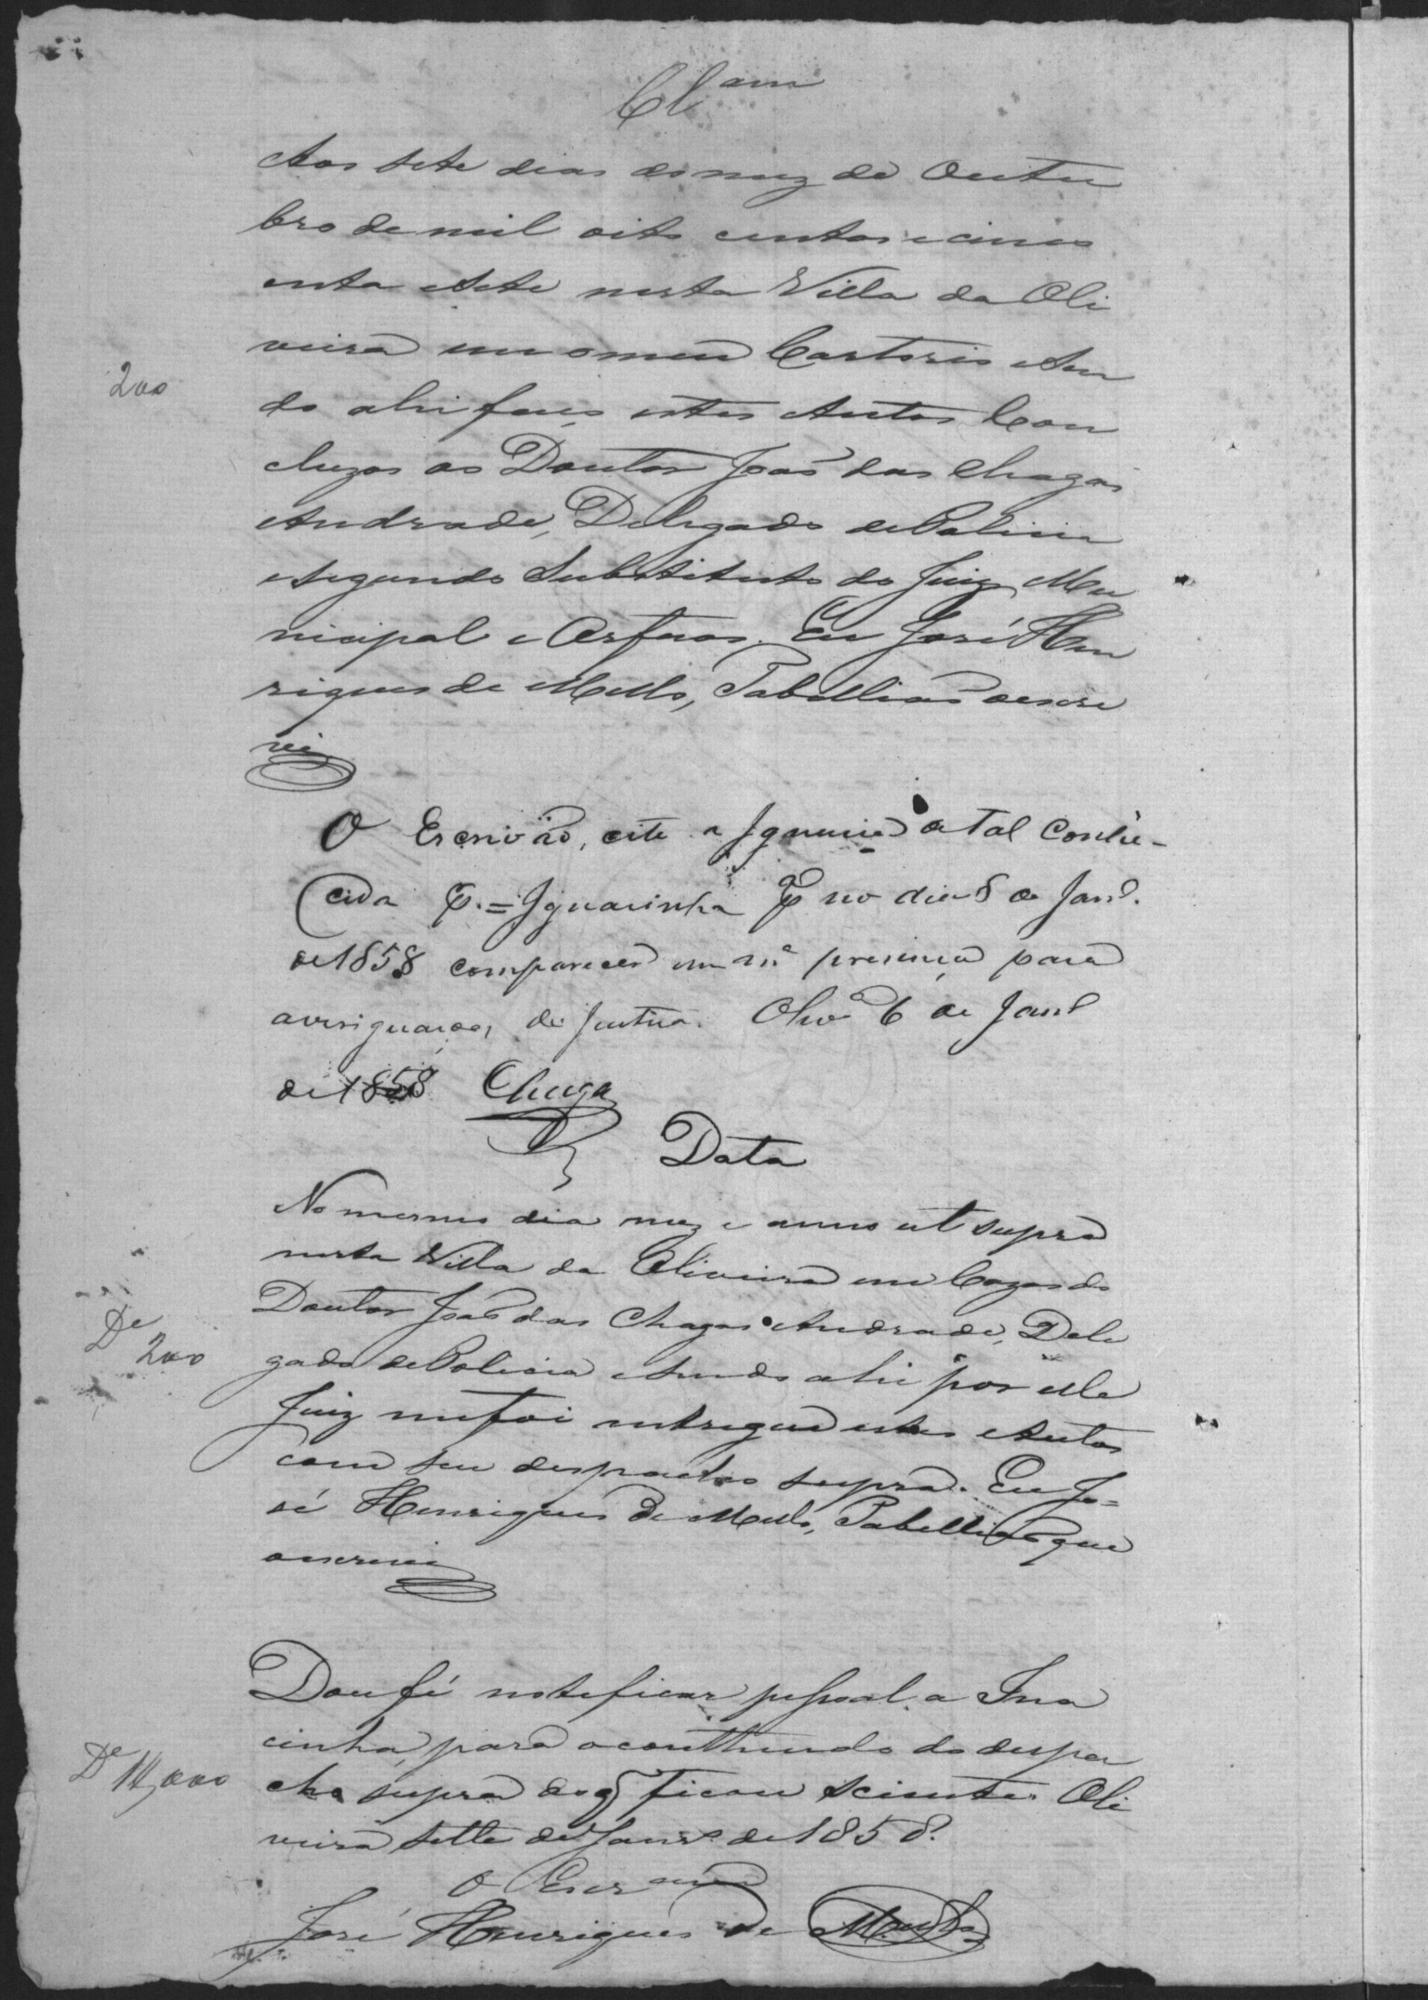 Cl.am
Aos sete dias do mez de Outu
bro de mil oito centos e cinco
enta e sete nesta Villa da Oli
veira em o meu Cartorio e sen
200
do ahi faço estes Autos Con
cluzos ao Doutor João das Chagas
Andrade, Delegado de Policia
e segundo Substituto do Juiz Mu
nicipal e Orfaos. Eu José Hen
riques de Mello, Tabellião o escre
vi
O Escrivão, cite a Ignacia de tal Conhe-
cida p.r = Ignacinha p.a no dia 8 de Janr.o
de 1858 comparecer em m.a presença para
averiguações de justiça. Olivr.a 6 de Janr.o
de 1858 Chagas
Data
No mesmo dia mez e anno ut supra
nesta Villa da Oliveira em Cazas do
Doutor João das Chagas Andrade, Dele
De
200
gado de Policia e sendo ahi por elle
Juiz me foi entregue estes Autos
com seu despacho supra. Eu Jo=
sé Henriques de Mello, Tabellião que
o escrevi
Dou fé notificar pessoal a Ina
cinha, para o contheudo do despa
De 1$000
cho supra do q ficou sciente. Oli
veira sette de Janr.o de 1858.
O Escr.am
José Henriques de Mello